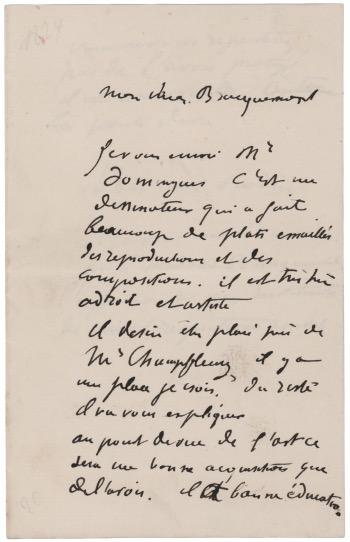 mon cher Bracquemont
Je vous envoi Mr
Domingues C'est un
dessinateur qui a fait
beaucoup de plats emaillés
des reproductions et des
compositions. il est très très
adroit et artiste
il desire être placé près de
Mr Champfleury il y a
une place je crois. Du reste
il va vous expliquer
au point de vue de l'art ce
sera une bonne acquisition que
de l'avoir. il a bonne éducation.